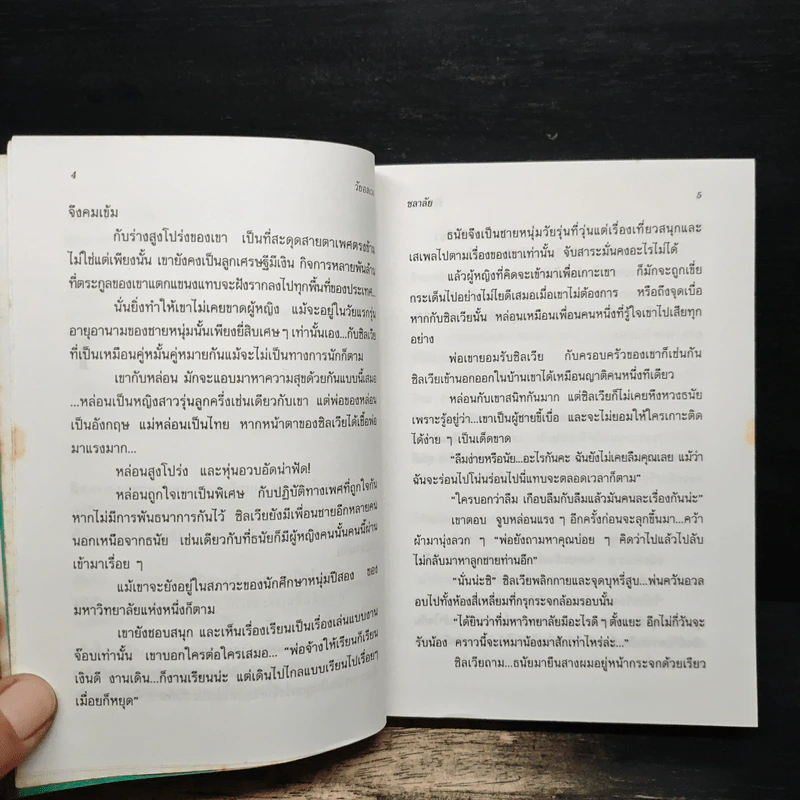 4
วัยอลเวง
จึงคมเข้ม
กับร่างสูงโปร่งของเขา เป็นที่สะดุดสายตาเพศตรงข้าม
ไม่ใช่แต่เพียงนั้น เขายังคงเป็นลูกเศรษฐีมีเงิน กิจการหลายพันล้าน
ที่ตระกูลของเขาแตกแขนงแทบจะฝังรากลงไปทุกพื้นที่ของประเทศ...
นั่นยิ่งทำให้เขาไม่เคยขาดผู้หญิง แม้จะอยู่ในวัยแรกรุ่น
อายุอานามของชายหนุ่มนั้นเพียงยี่สิบเศษ ๆ เท่านั้นเอง...กับซิลเวีย
ที่เป็นเหมือนคู่หมั้นคู่หมายกันแม้จะไม่เป็นทางการนักก็ตาม
เขากับหล่อน มักจะแอบมาหาความสุขด้วยกันแบบนี้เสมอ
...หล่อนเป็นหญิงสาวรุ่นลูกครึ่งเช่นเดียวกับเขา แต่พ่อของหล่อน
เป็นอังกฤษ แม่หล่อนเป็นไทย หากหน้าตาของซิลเวียได้เชื้อพ่อ
มาแรงมาก...
หล่อนสูงโปร่ง และหุ่นอวบอัดน่าฟัด!
หล่อนถูกใจเขาเป็นพิเศษ กับปฏิบัติทางเพศที่ถูกใจกัน
หากไม่มีการพันธนาการกันไว้ ซิลเวียยังมีเพื่อนชายอีกหลายคน
นอกเหนือจากธนัย เช่นเดียวกับที่ธนัยก็มีผู้หญิงคนนั้นคนนี้ผ่าน
เข้ามาเรื่อย ๆ
แม้เขาจะยังอยู่ในสภาวะของนักศึกษาหนุ่มปีสอง ของ
มหาวิทยาลัยแห่งหนึ่งก็ตาม
เขายังชอบสนุก และเห็นเรื่องเรียนเป็นเรื่องเล่นแบบงาน
จ๊อบเท่านั้น เขาบอกใครต่อใครเสมอ... “พ่อจ้างให้เรียนก็เรียน
เงินดี งานเดิน...ก็งานเรียนน่ะ แต่เดินไปไกลแบบเรียนไปเรื่อยๆ
เมื่อยก็หยุด”
ชลาลัย
5
ธนัยจึงเป็นชายหนุ่มวัยรุ่นที่วุ่นแต่เรื่องเที่ยวสนุกและ
เสเพลไปตามเรื่องของเขาเท่านั้น จับสาระมั่นคงอะไรไม่ได้
แล้วผู้หญิงที่คิดจะเข้ามาเพื่อเกาะเขา ก็มักจะถูกเขี่ย
กระเด็นไปอย่างไม่ไยดีเสมอเมื่อเขาไม่ต้องการ หรือถึงจุดเบื่อ
หากกับซิลเวียนั้น หล่อนเหมือนเพื่อนคนหนึ่งที่รู้ใจเขาไปเสียทุก
อย่าง
พ่อเขายอมรับซิลเวีย กับครอบครัวของเขาก็เช่นกัน
ซิลเวียเข้านอกออกในบ้านเขาได้เหมือนญาติคนหนึ่งทีเดียว
หล่อนกับเขาสนิทกันมาก แต่ซิลเวียก็ไม่เคยหึงหวงธนัย
เพราะรู้อยู่ว่า...เขาเป็นผู้ชายขี้เบื่อ และจะไม่ยอมให้ใครเกาะติด
ได้ง่าย ๆ เป็นเด็ดขาด
“ลืมง่ายหรือนัย...อะไรกันคะ ฉันยังไม่เคยลืมคุณเลย แม้ว่า
ฉันจะร่อนไปโน่นร่อนไปนี่แทบจะตลอดเวลาก็ตาม”
“ใครบอกว่าลืม เกือบลืมกับลืมแล้วมันคนละเรื่องกันน่ะ”
เขาตอบ จูบหล่อนแรง ๆ อีกครั้งก่อนจะลุกขึ้นมา...คว้า
ผ้ามานุ่งลวก ๆ “พ่อยังถามหาคุณบ่อย ๆ คิดว่าไปแล้วไปลับ
ไม่กลับมาหาลูกชายท่านอีก”
“นั่นน่ะซิ” ซิลเวียพลิกกายและจุดบุหรี่สูบ...พ่นควันอวล
อบไปทั้งห้องสี่เหลี่ยมที่กรุกระจกล้อมรอบนั้น
“ได้ยินว่าที่มหาวิทยาลัยมีอะไรดี ๆ ตั้งแยะ อีกไม่กี่วันจะ
รับน้อง คราวนี้จะเหมาน้องมาสักเท่าไหร่ล่ะ...”
ซิลเวียถาม...ธนัยมายืนสางผมอยู่หน้ากระจกด้วยเรียว